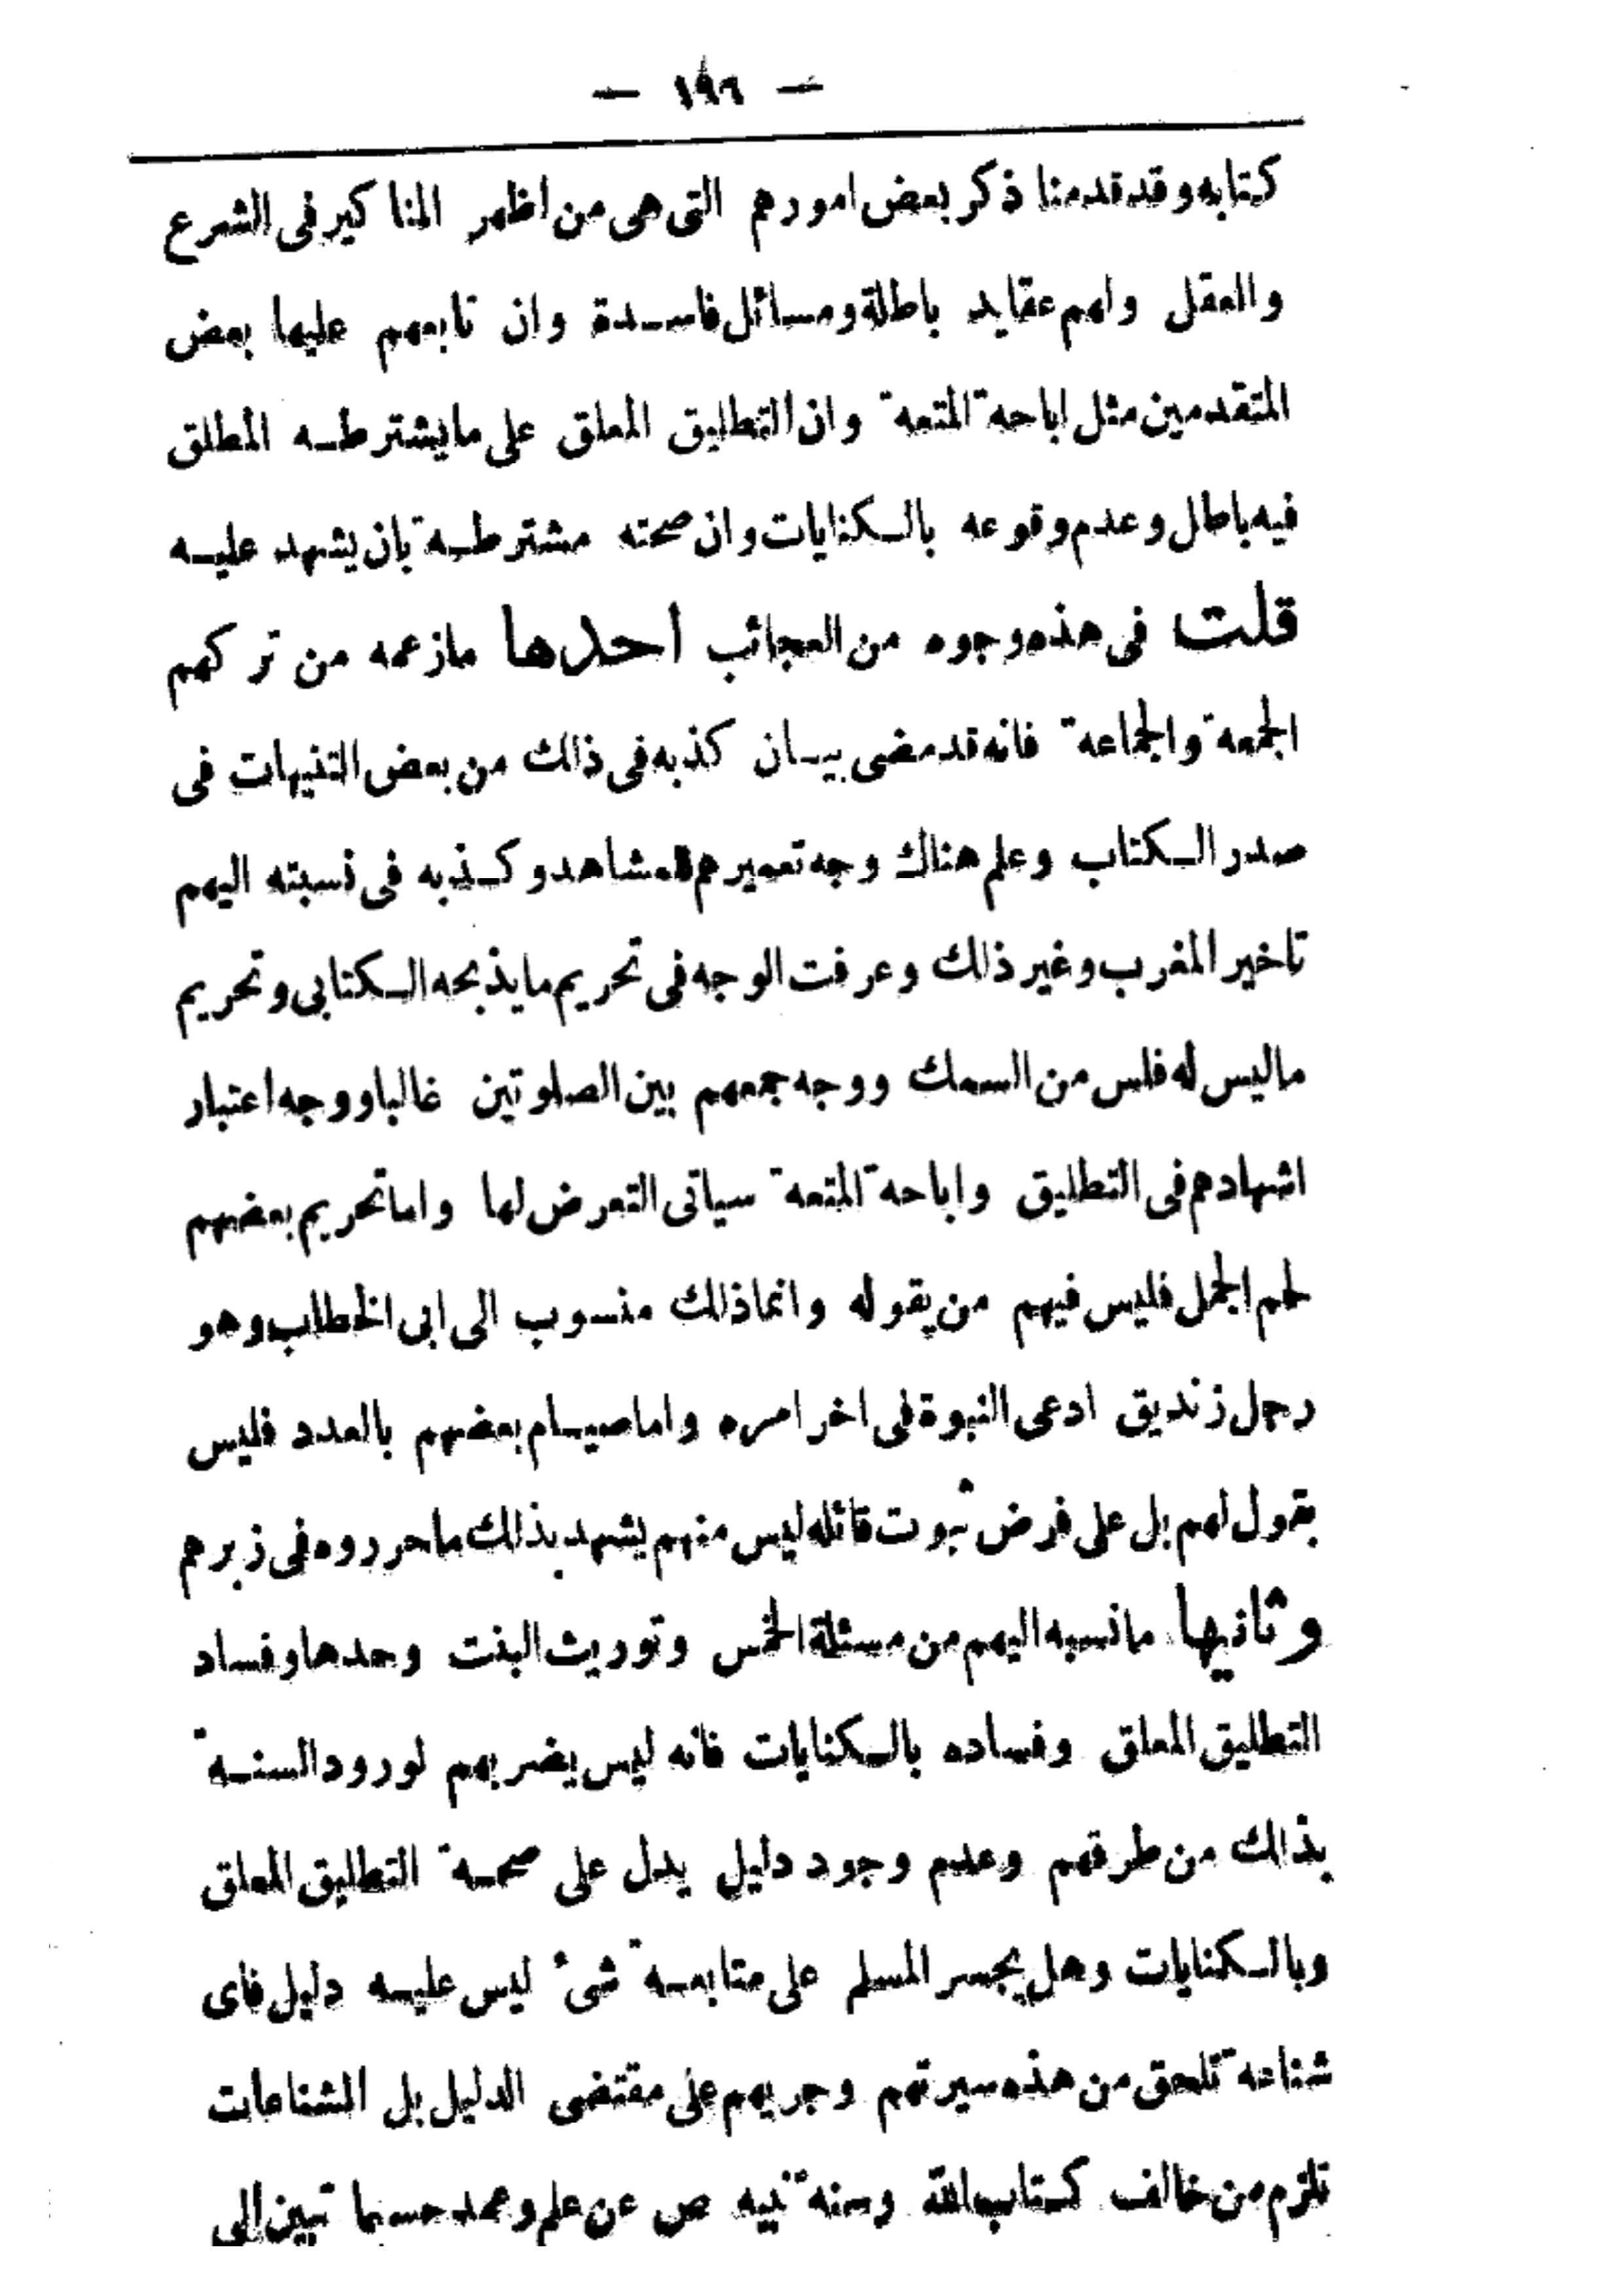 — ١٩٦ —
كتابه وقد قدمنا ذكر بعض امورهم التى هى من اظهر المناكير فى الشرع
والعقل ولهم عقايد باطلة ومسائل فاسدة وان تابعهم عليها بعض
المتقدمين مثل اباحة المتعة وان التطليق المعلق على ما يشترطه المطلق
فيه باطل وعدم وقوعه بالكنايات وان صحته مشترطة بان يشهد عليه
قلت فى هذه وجوه من العجائب احدها ما زعمه من تركهم
الجمعة والجماعة فانه قد مضى بيان كذبه فى ذالك من بعض التنبيهات فى
صدر الكتاب وعلم هناك وجه تعميرهم المشاهد وكذبه فى نسبته اليهم
تاخير المغرب وغير ذلك وعرفت الوجه فى تحريم ما يذبحه الكتابى وتحريم
ما ليس له فلس من السمك ووجه جمعهم بين الصلوتين غالبا ووجه اعتبار
اشهادهم فى التطليق واباحة المتعة سياتى التعرض لها واما تحريم بعضهم
لحم الجمل فليس فيهم من يقوله وانما ذلك منسوب الى ابى الخطاب وهو
رجل زنديق ادعى النبوة فى اخر امره واما صيام بعضهم بالعدد فليس
بقول لهم بل على فرض ثبوت قائله ليس منهم يشهد بذلك ما حرروه فى زبرهم
وثانيها ما نسبه اليهم من مسئلة الخمس وتوريث البنت وحدها وفساد
التطليق المعلق وفساده بالكنايات فانه ليس يضر بهم لورود السنة
بذالك من طرقهم وعدم وجود دليل يدل على صحة التطليق المعلق
وبالكنايات وهل يجسر المسلم على متابعة شئ ليس عليه دليل فاى
شناعة تلحق من هذه سيرتهم وجريهم على مقتضى الدليل بل الشناعات
تلزم من خالف كتاب الله وسنة نبيه ص عن علم وعمد حسبما تبين الى